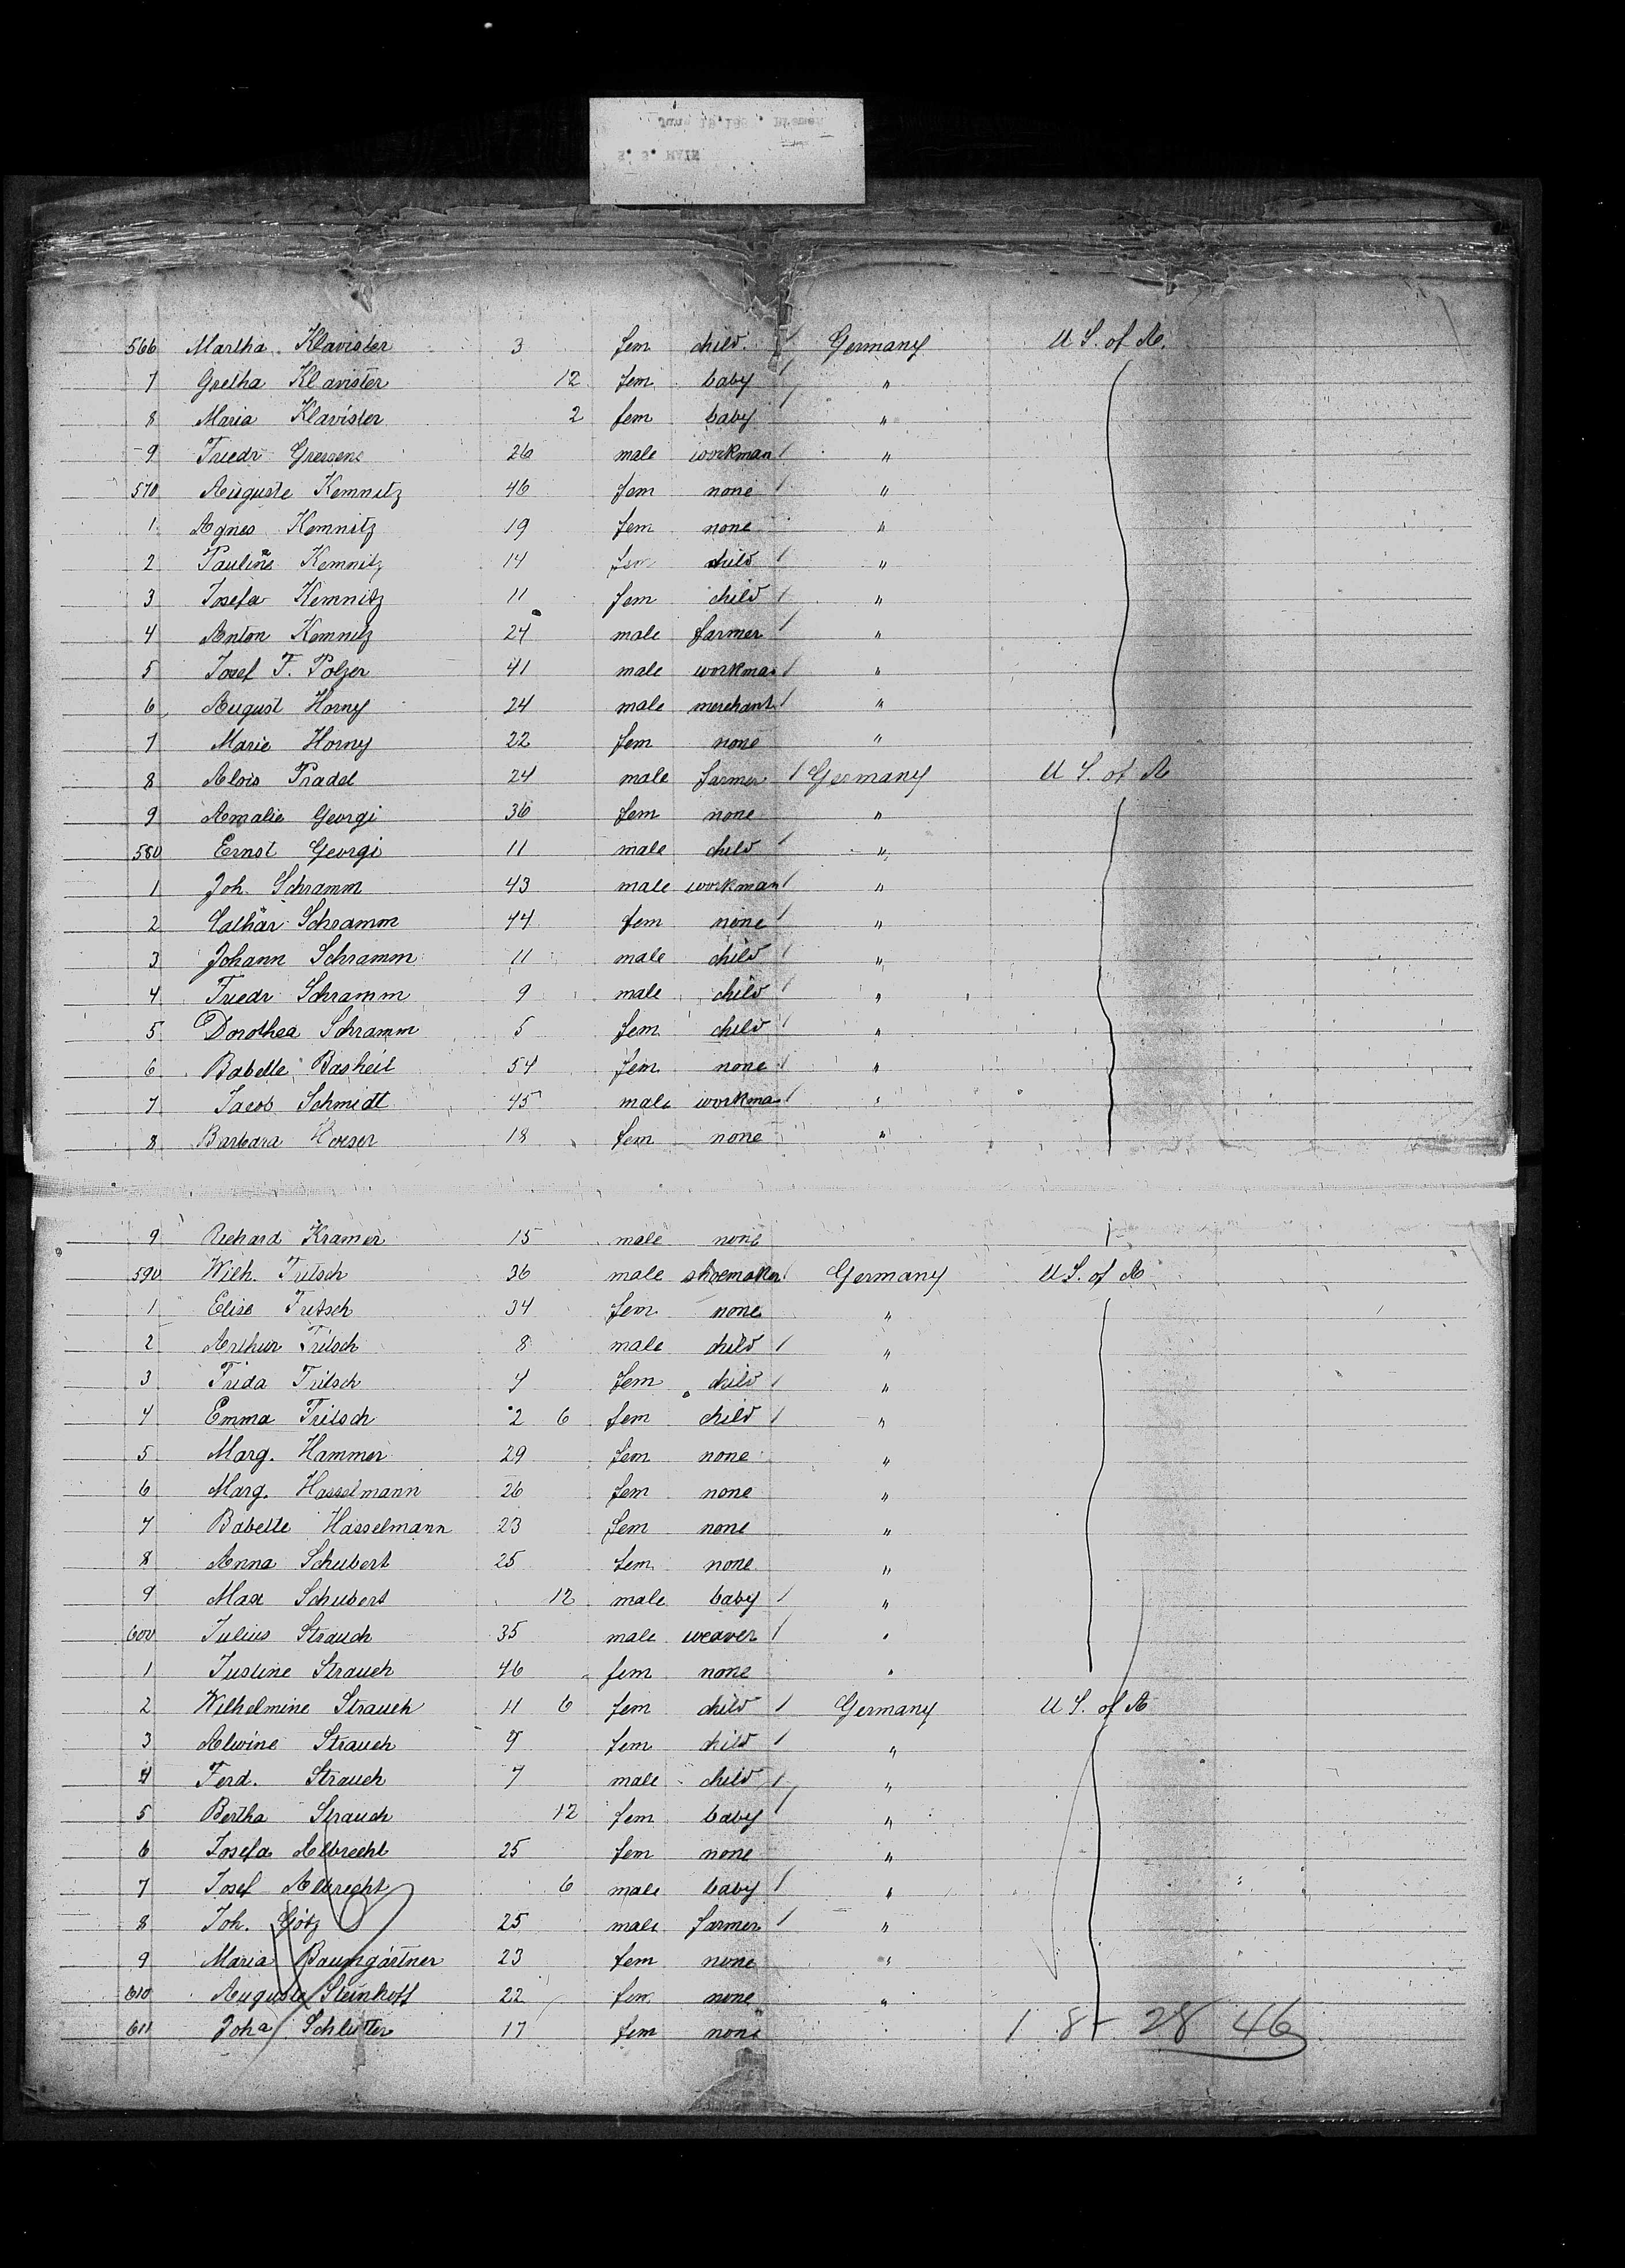 June 18.188 . Bremen
S. S. MAIN
566 Martha Klavister 3 fem child / Germany U S. of A.
7 Gretha Klavister 12 fem baby / "
8 Maria Klavister 2 fem baby "
9 Friedr 26 male workman / "
570 Auguste Kemnitz 46 fem none / "
1 Agnes Kemnitz 19 fem none "
2 Pauline Kemnitz 14 fem child / "
3 Josefa Kemnitz 11 fem child / "
4 Anton Kemnitz 24 male farmer / "
5 Josef F. Polzer 41 male workman / "
6 August Horny 24 male merchant / "
7 Marie Horny 22 fem none "
8 Alois Pradel 24 male farmer / Germany U S. of A
9 Amalie Georgi 36 fem none "
580 Ernst Georgi 11 male child / "
1 Joh. Schramm 43 male workman / "
2 Cathar Schramm 44 fem none / "
3 Johann Schramm 11 male child / "
4 Friedr Schramm 9 male child / "
5 Dorothea Schramm 5 fem child / "
6 Babette 54 fem none / "
7 Jacob Schmidt 45 male workman / "
8 Barbara Hoeser 18 fem none "
9 Richard Kramer 15 male none
590 Wilh. Fritsch 36 male shoemaker / Germany U S. of A
1 Elise Fritsch 34 fem none "
2 Arthur Fritsch 8 male child / "
3 Frida Fritsch 7 fem child / "
4 Emma Fritsch 2 6 fem child / "
5 Marg. Hammer 29 fem none "
6 Marg. Hasselmann 26 fem none "
7 Babette Hasselmann 23 fem none "
8 Anna Schubert 25 fem none "
9 Max Schubert 12 male baby / "
600 Julius Strauch 35 male weaver / "
1 Justine Strauch 46 fem none "
2 Wilhelmine Strauch 11 6 fem child / Germany U S. of A
3 Alwine Strauch 9 fem child / "
4 Ferd. Strauch 7 male child / "
5 Bertha Strauch 12 fem baby / "
6 Josefa Albrecht 25 fem none "
7 Josef Albrecht 6 male baby / "
8 Joh. Götz 25 male farmer / "
9 Maria Baumgärtner 23 fem none "
610 Auguste Steinhoff 22 fem none "
611 Joha Schlutter 17 fem none 1 8 - 28 46